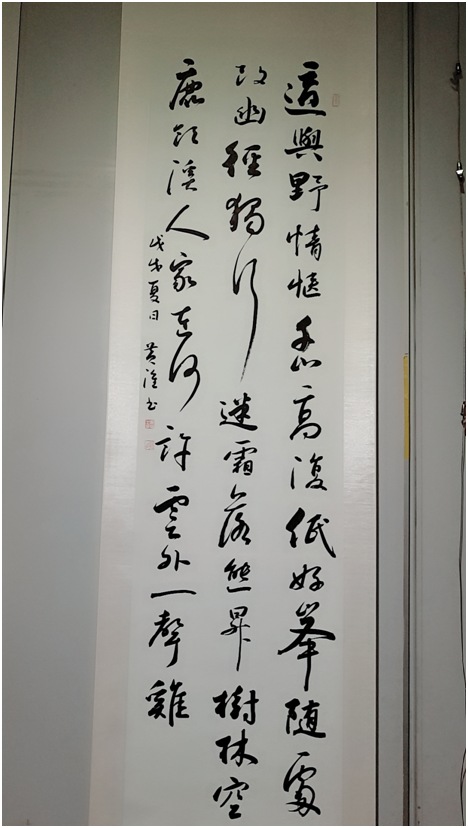 適與野情愜千山高復低好峯隨處
改幽徑獨行迷霜落熊昇樹林空
鹿飲溪人家在何許雲外一聲雞
戊戌夏日 黄溢书